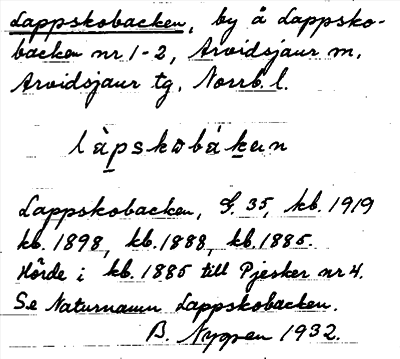 Lappskobacken, by å Lappsko-
backen nr 1-2, Arvidsjaur m.
Arvidsjaur tg. Norrb. l.
làpskobákɐn
Lappskobacken, G. 35, kb. 1919
kb. 1898, kb. 1888, kb. 1885.
Hörde i kb. 1885 till Pjesker nr 4.
Se Naturnamn Lappskobacken.
B. Nygren 1932.